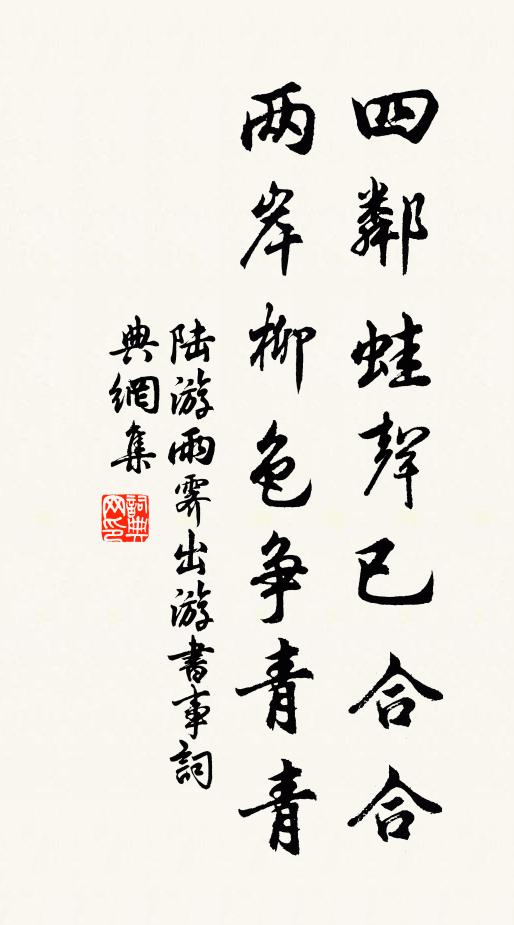 四鄰蛙聲已合合
两岸柳色争青青
陆游雨霽出游書事詞
典網集
詞典
网印